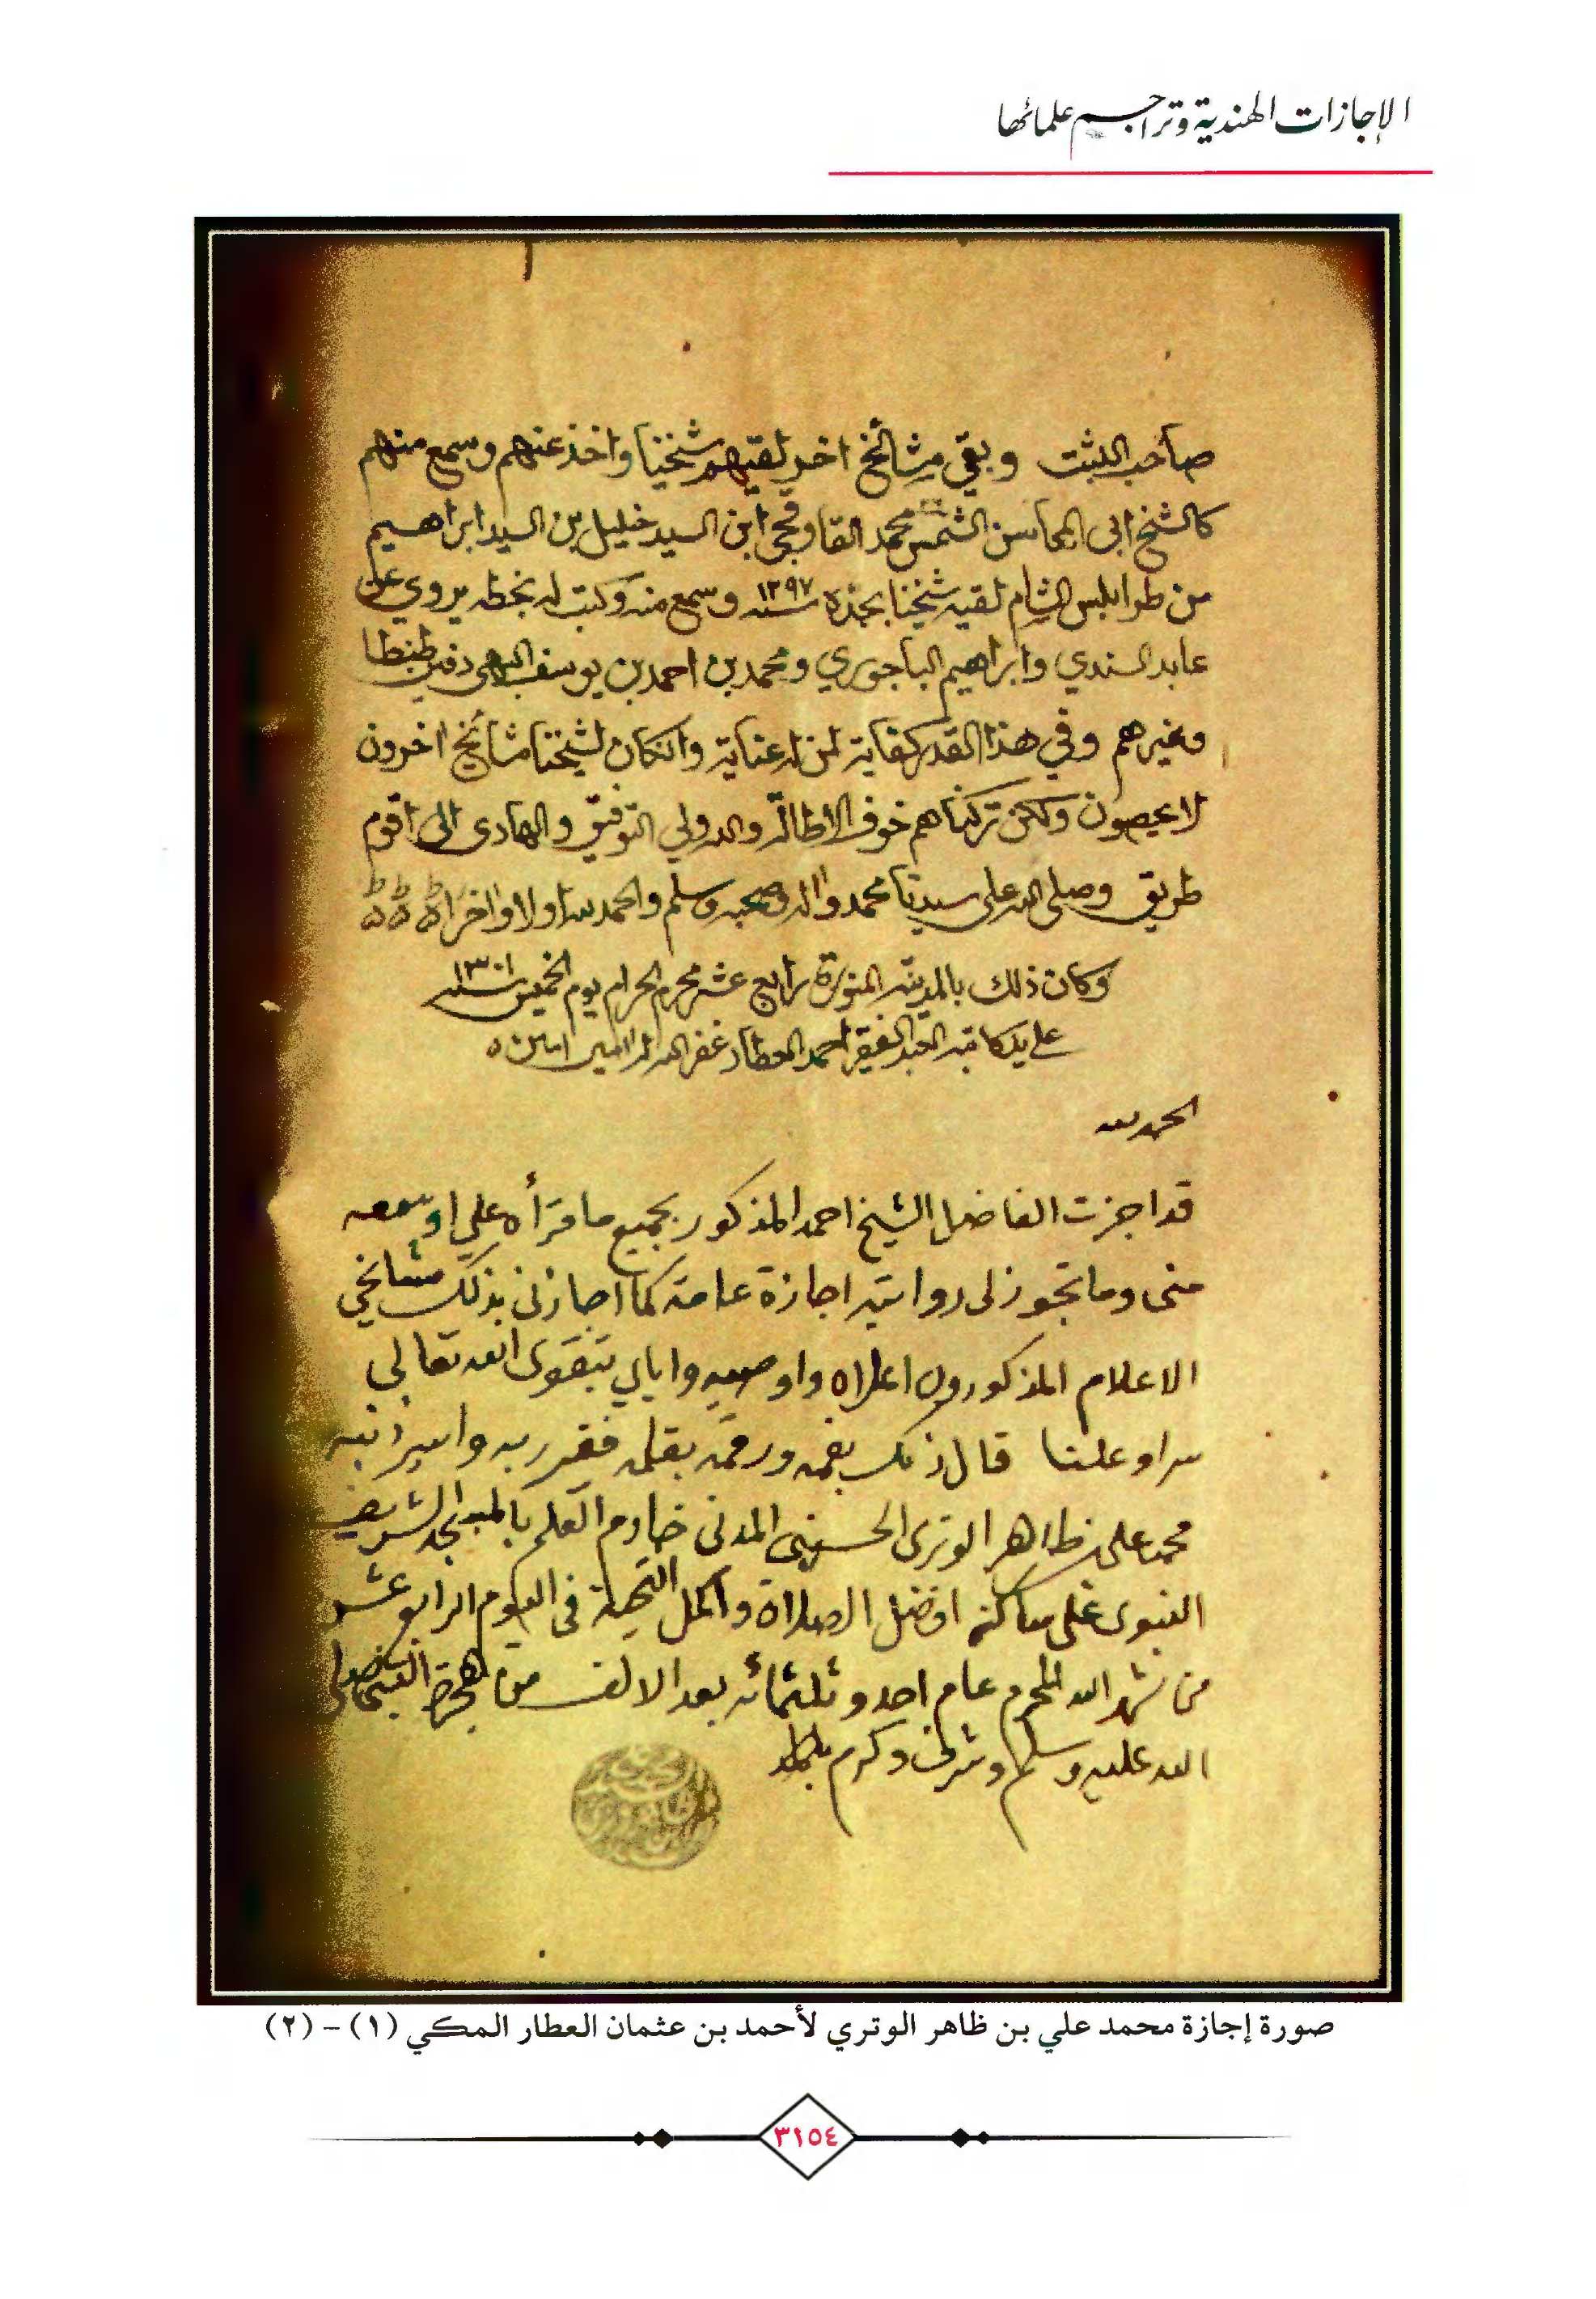 الإجازات الهندية وتراجم علمائها
صاحب الثبت وبقي مشائخ اخر لقيهم شيخنا واخذ عنهم وسمع منهم
كالشيخ ابى المحاسن الشمس محمد القاوقجي ابن السيد خليل بن السيد ابراهيم
من طرابلس الشام لقيه شيخنا بجده سنه ١٢٩٧ وسمع منه وكتب له بخطه يروي عن
عابد السندي وابراهيم الباجوري ومحمد بن احمد بن يوسف البهى دفين طنطا
وغيرهم وفي هذا القدر كفاية لمن له عناية وانكان لشيخنا مشائخ اخرون
لا يحصون ولكن تركناهم خوف الاطالة والله ولي التوفيق والهادى الى اقوم
طريق وصلى الله على سيدنا محمد واله وصحبه وسلم والحمد لله اولا واخرا
وكان ذلك بالمدينة المنورة رابع عشر محرم الحرام يوم الخميس سنه ١٣٠١
على يد كاتبه العبد الفقير احمد العطار غفر الله له امين امين
الحمد لله
قد اجزت الفاضل الشيخ احمد المذكور بجميع ما قرأه علي او سمعه
منى وما تجوز لى روايته اجازة عامة كما اجازنى بذلك مشائخي
الاعلام المذكورون اعلاه واوصيه واياي بتقوى الله تعالى
سرا وعلنا قال ذلك بفمه ورقمه بقلمه فقير ربه واسير ذنبه
محمد على بن ظاهر الوترى الحسينى المدنى خادم العلم بالمسجد الشريف
النبوى على ساكنه افضل الصلاة واكمل التحية فى اليوم الرابع عشر
من شهر الله المحرم عام احد وثلثمائه بعد الالف من الهجرة النبوية صلى
الله عليه وسلم وشرف وكرم
صورة إجازة محمد علي بن ظاهر الوتري لأحمد بن عثمان العطار المكي (١) - (٢)
٣١٥٤